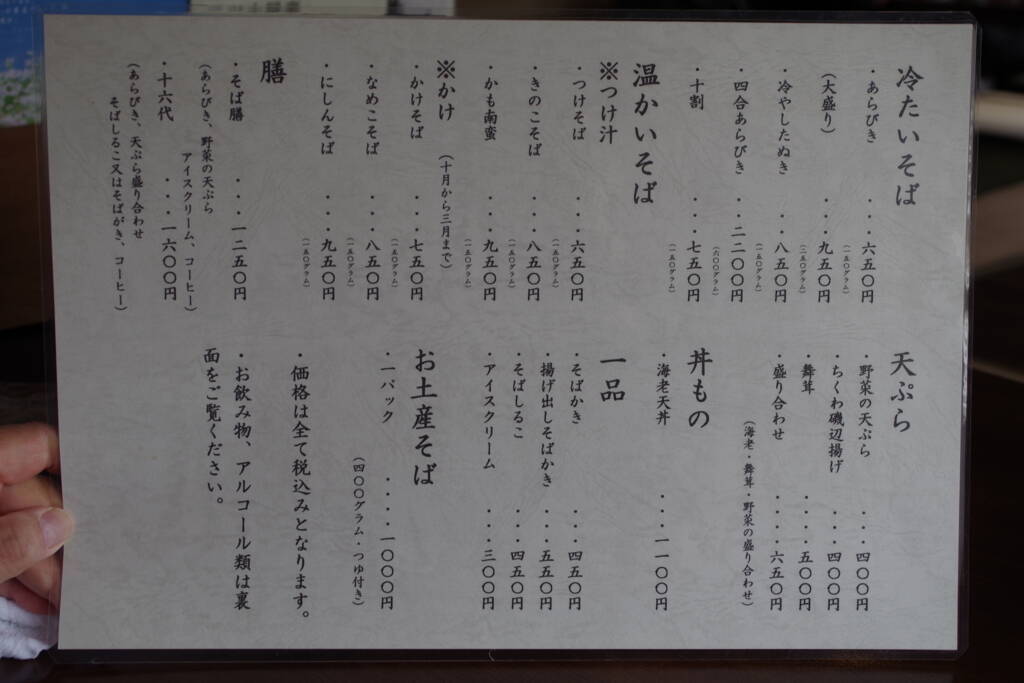 冷たいそば
・あらびき ・・・六五〇円
(一五〇グラム)
(大盛り) ・・九五〇円
(二五〇グラム)
・冷やしたぬき ・・八五〇円
(一五〇グラム)
・四合あらびき ・・二二〇〇円
(六〇〇グラム)
・十割 ・・・七五〇円
(一五〇グラム)
温かいそば
※つけ汁
・つけそば ・・・六五〇円
(一五〇グラム)
・きのこそば ・・・八五〇円
(一五〇グラム)
・かも南蛮 ・・・九五〇円
(一五〇グラム)
※かけ (十月から三月まで)
・かけそば ・・・七五〇円
(一五〇グラム)
・なめこそば ・・・八五〇円
(一五〇グラム)
・にしんそば ・・・九五〇円
(一五〇グラム)
膳
・そば膳 ・・・一二五〇円
(あらびき、野菜の天ぷら
アイスクリーム、コーヒー)
・十六代 ・・・一六〇〇円
(あらびき、天ぷら盛り合わせ
そばしるこ又はそばがき、コーヒー)
天ぷら
・野菜の天ぷら ・・・四〇〇円
・ちくわ磯辺揚げ ・・・四〇〇円
・舞茸 ・・・・五〇〇円
・盛り合わせ ・・・・六五〇円
(海老・舞茸・野菜の盛り合わせ)
丼もの
・海老天丼 ・・・一一〇〇円
一品
・そばかき ・・・四五〇円
・揚げ出しそばかき ・・・五五〇円
・そばしるこ ・・・四五〇円
・アイスクリーム ・・・三〇〇円
お土産そば
・一パック ・・・・一〇〇〇円
(四〇〇グラム・つゆ付き)
・価格は全て税込みとなります。
・お飲み物、アルコール類は裏
面をご覧ください。